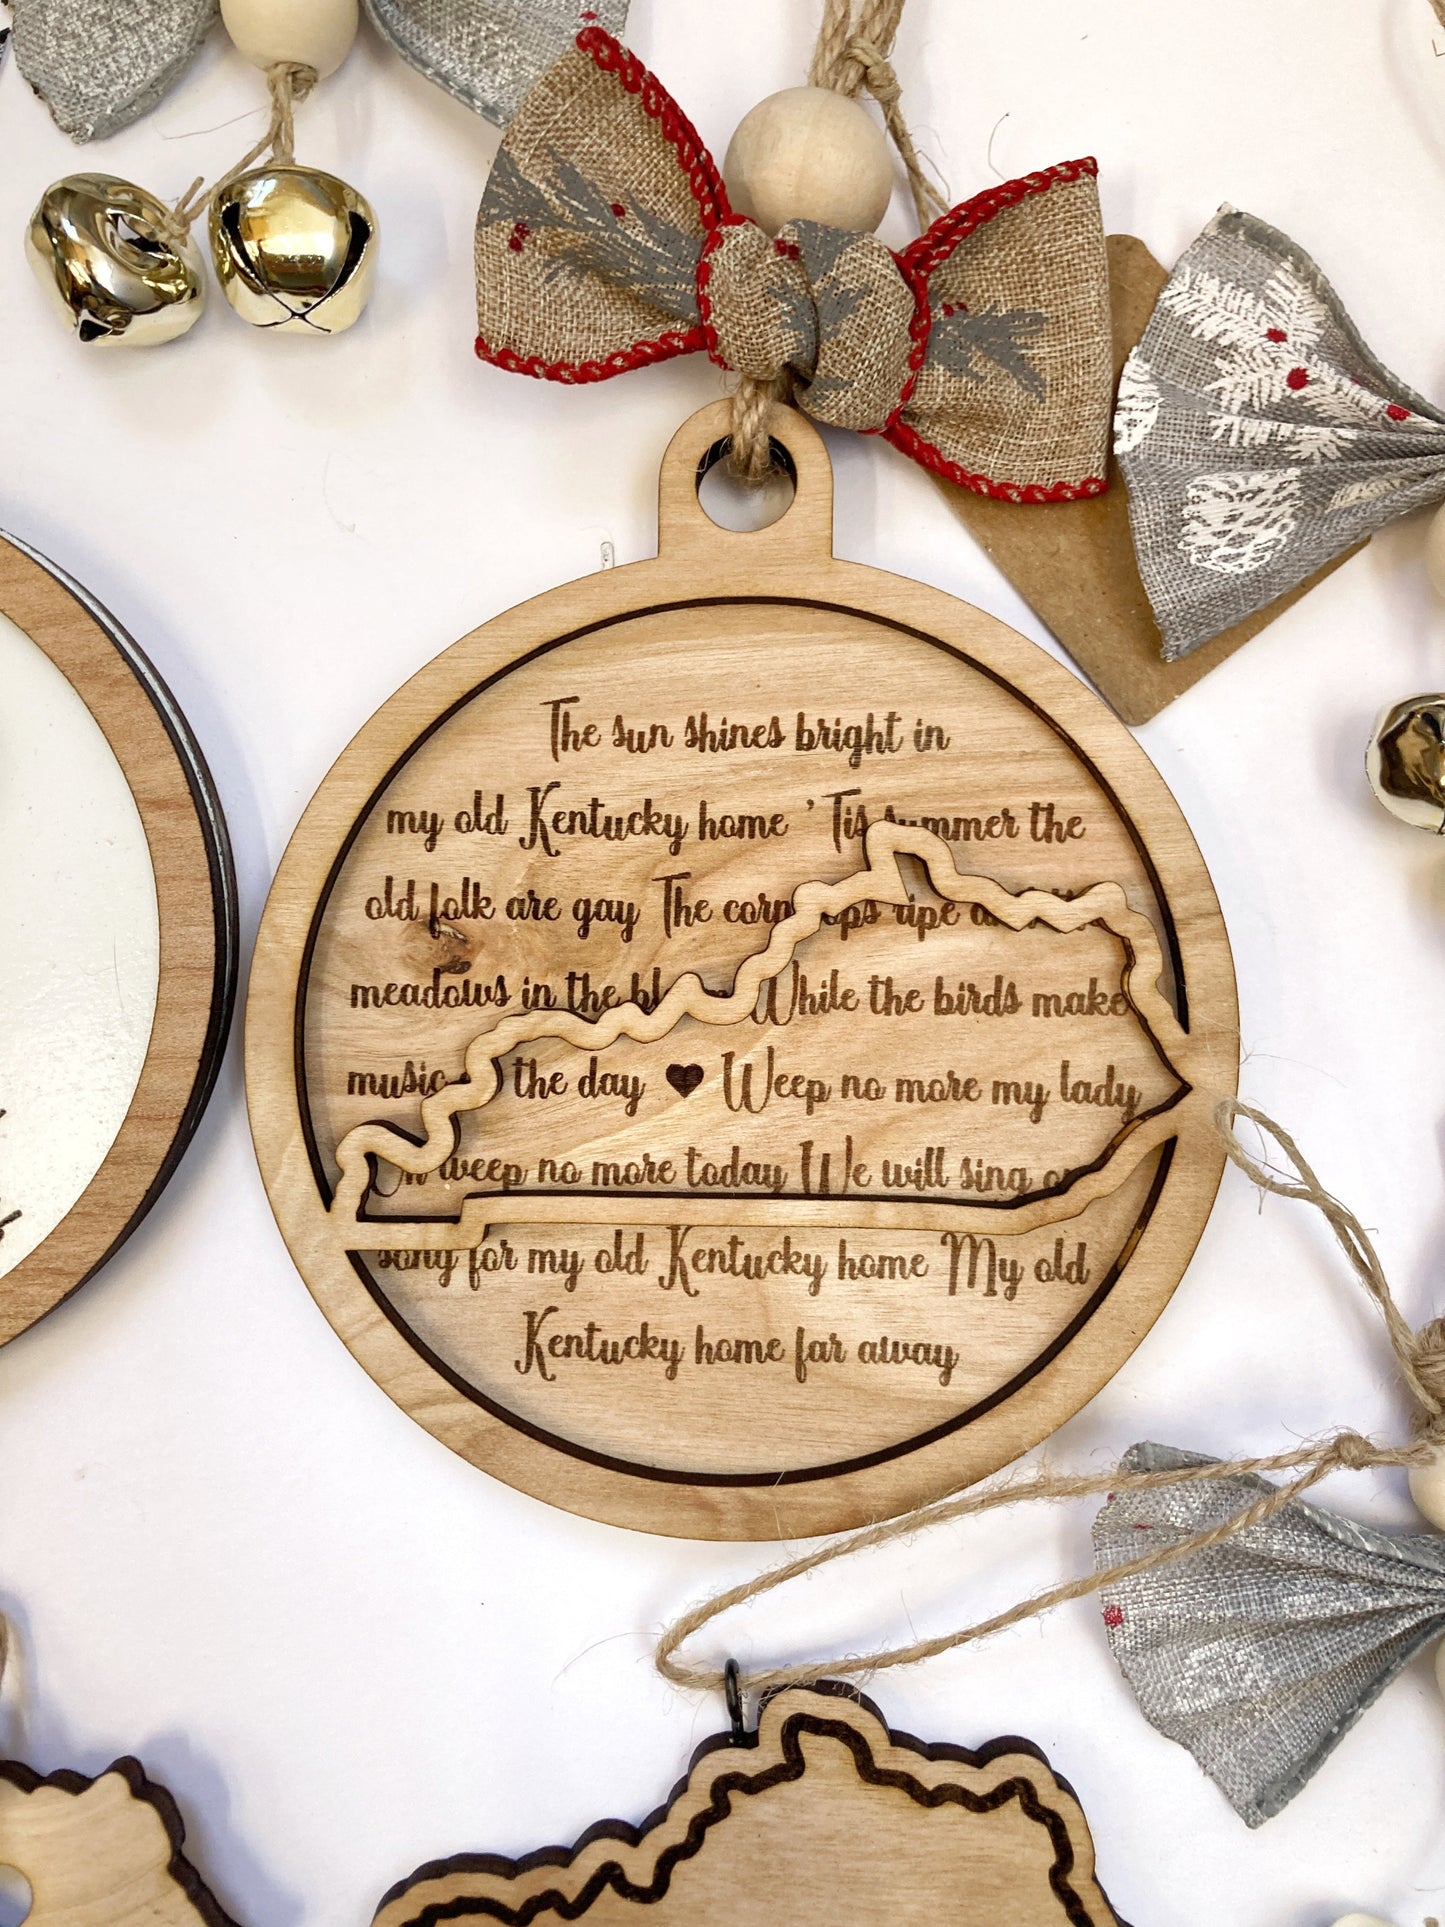 The sun shines bright in
my old Kentucky home 'Tis summer the
old folk are gay The corn ripe
meadows in the While the birds make
music the day ♥ Weep no more my lady
weep no more today We will sing
song for my old Kentucky home My old
Kentucky home far away